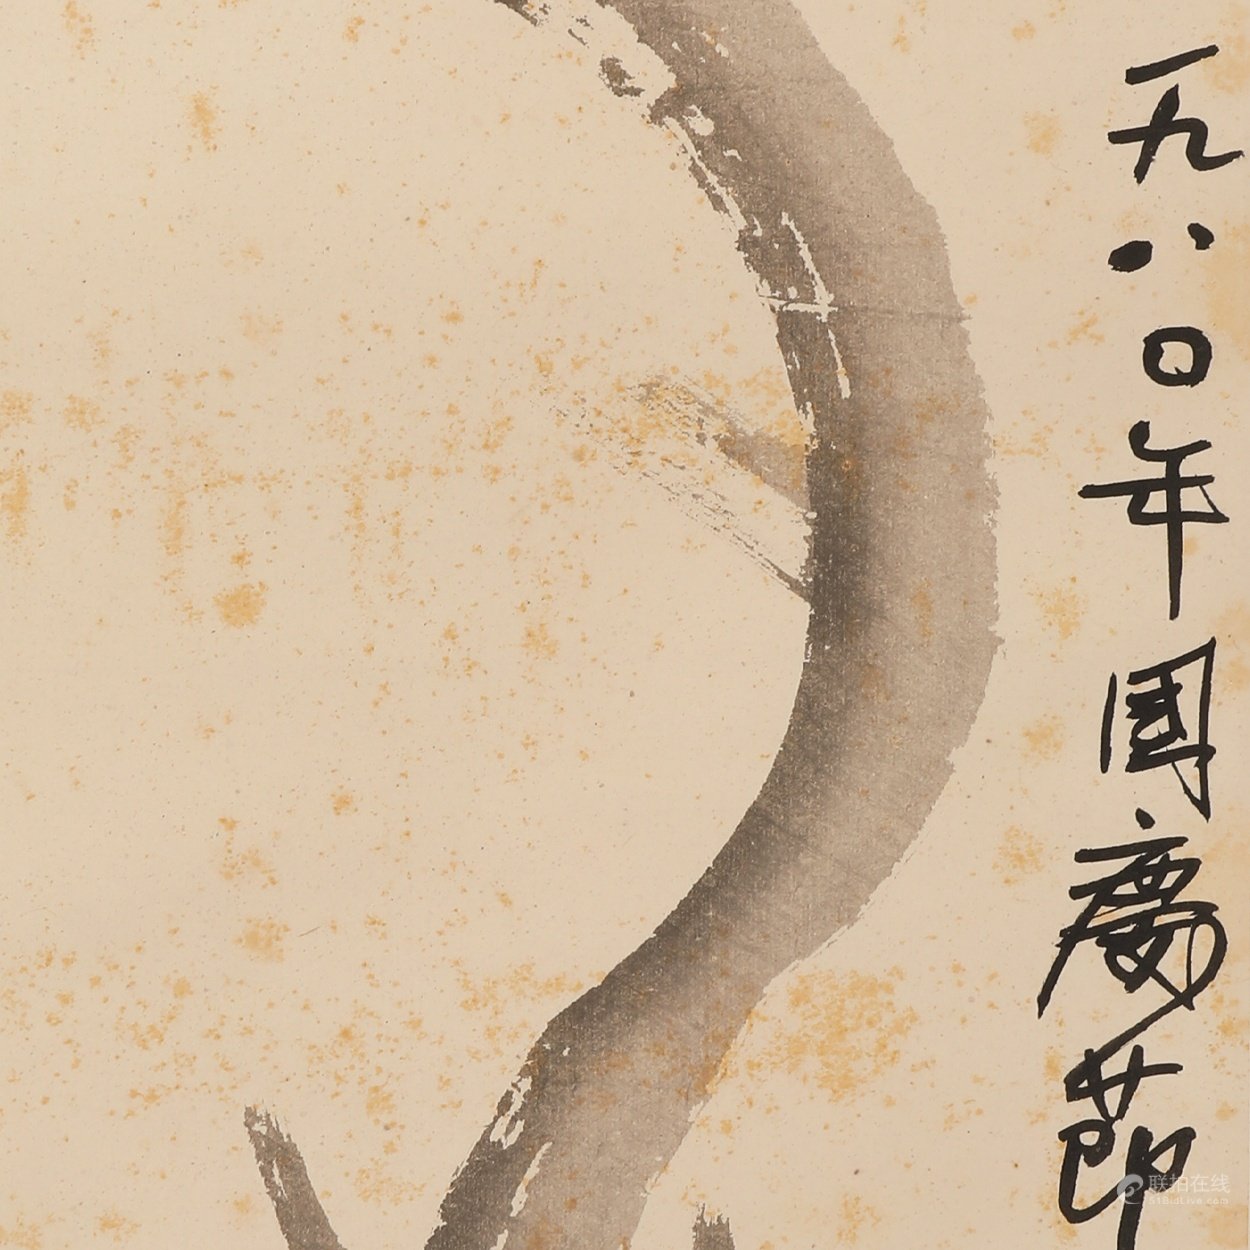 一九八〇年国慶節
联拍在线
518idLive.com